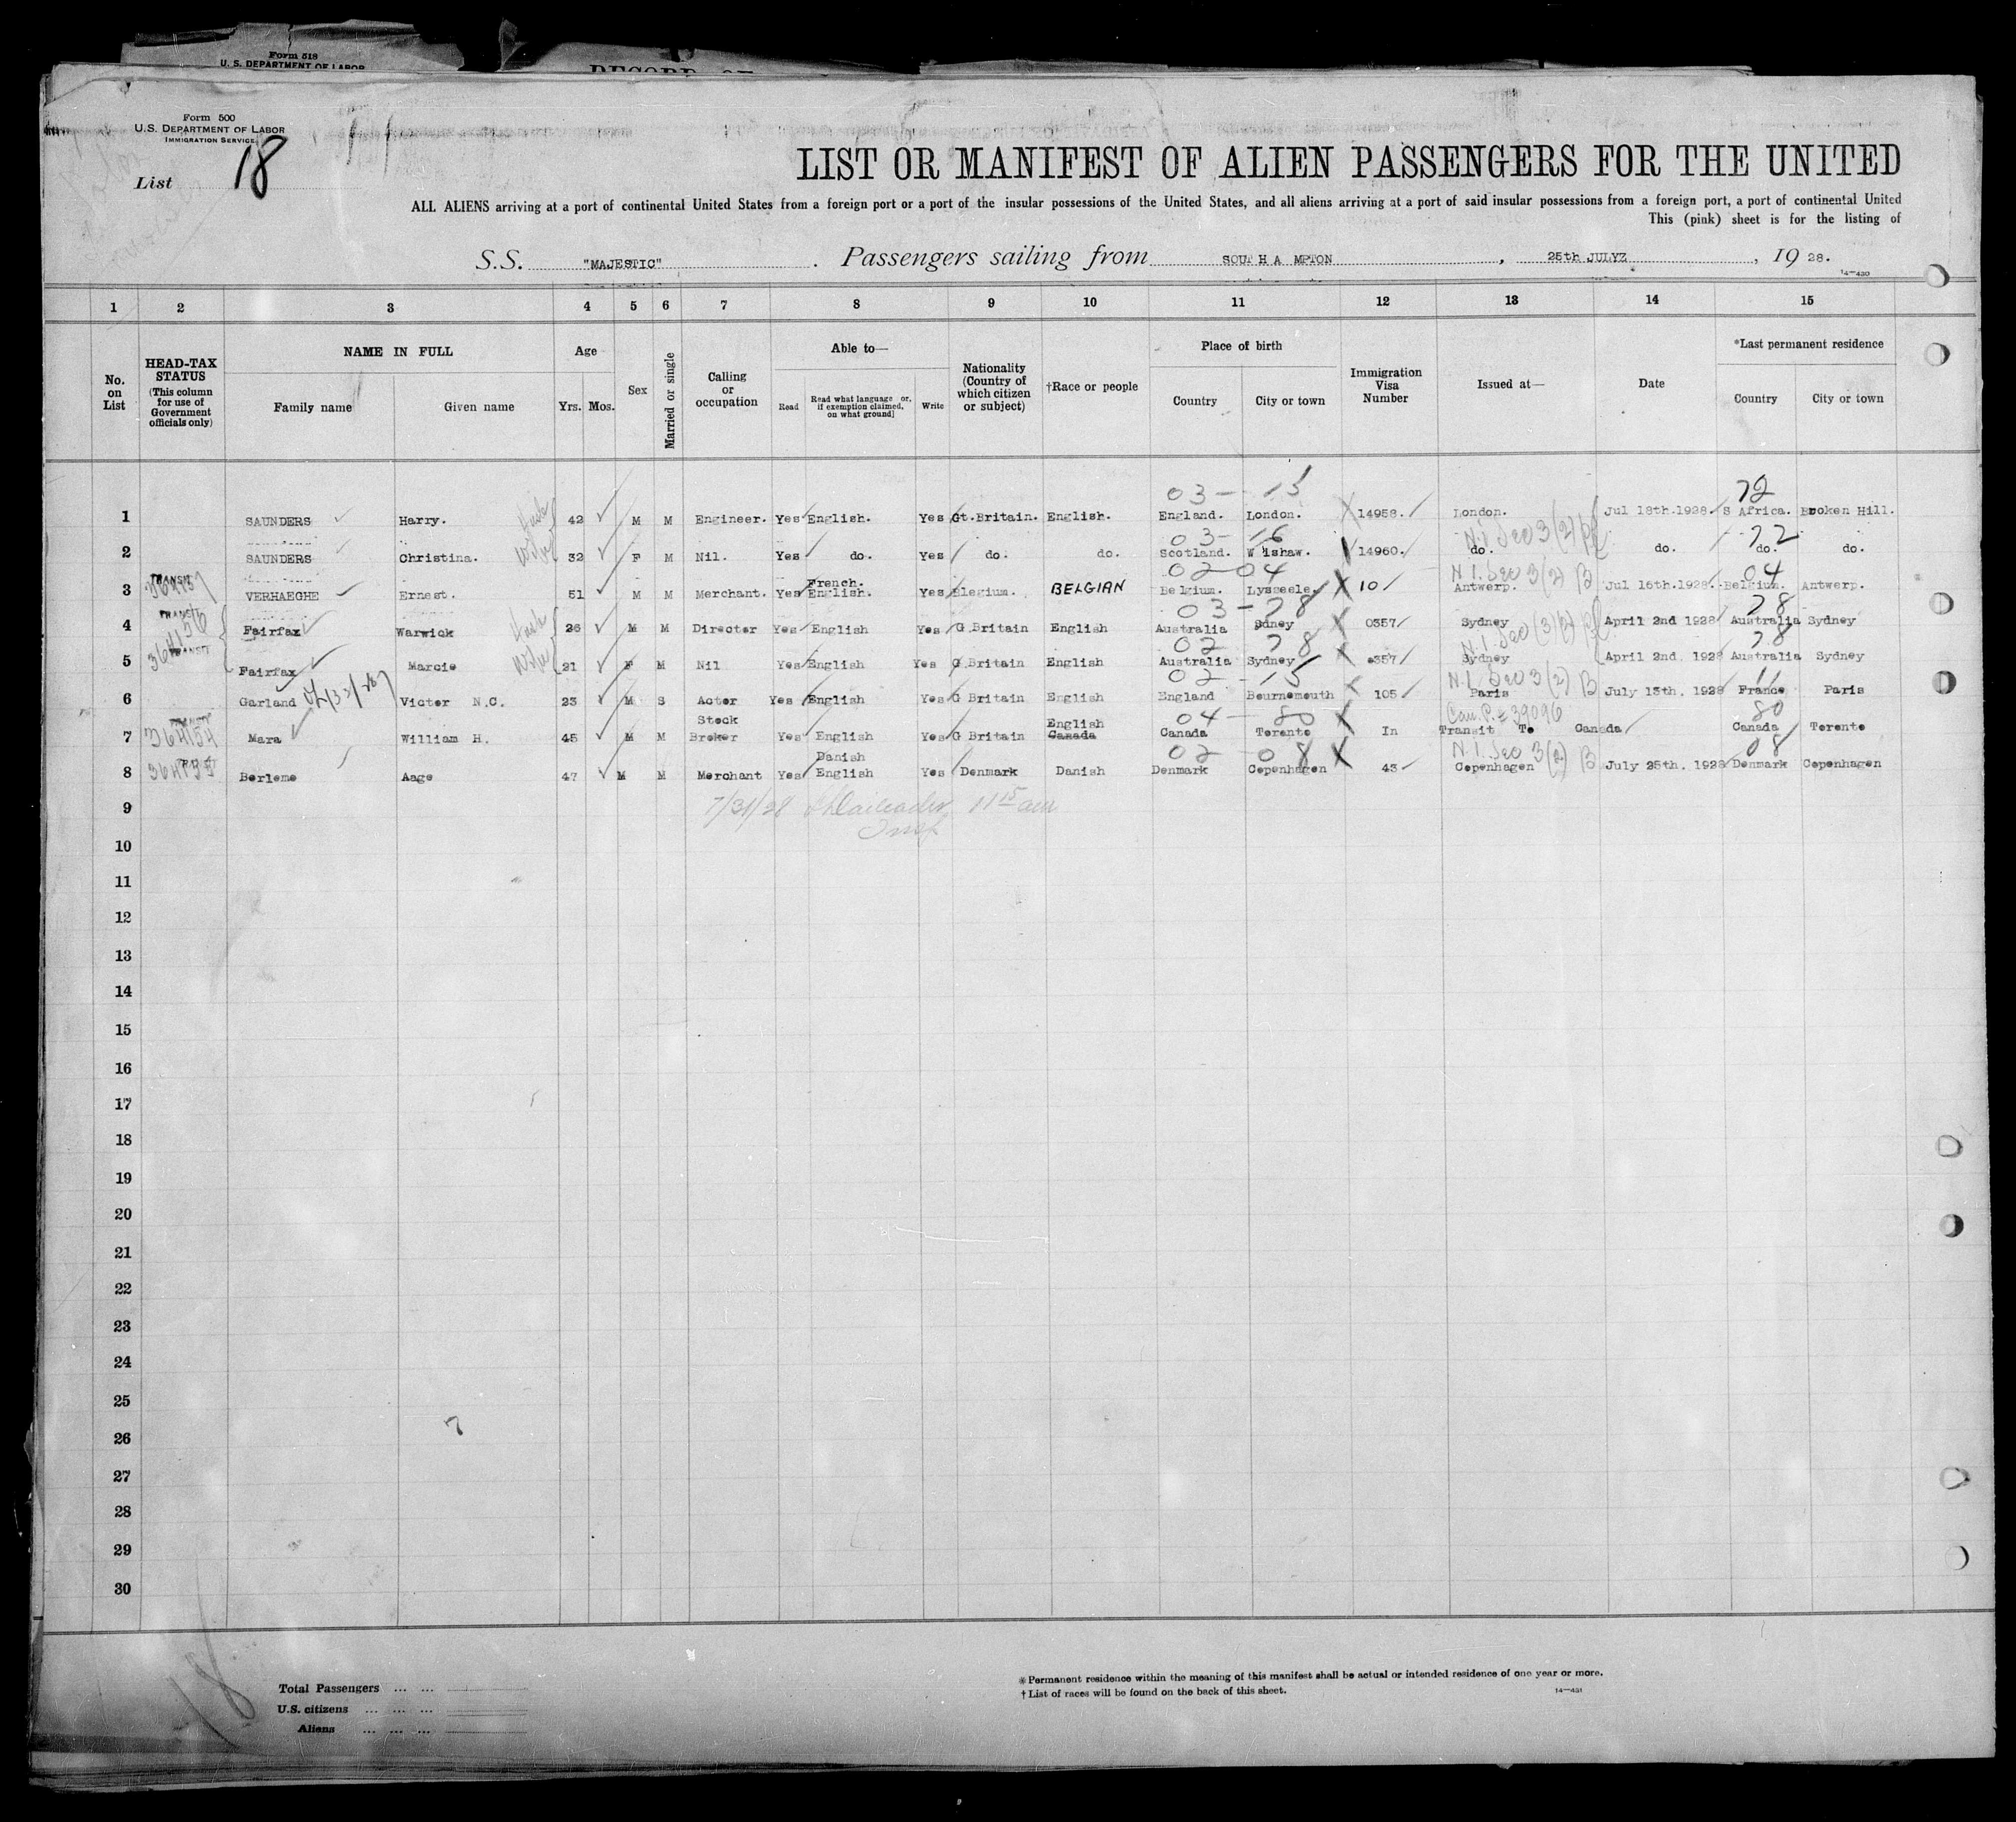 Form 518
U. S. DEPARTMENT OF LABOR
Form 500
U.S. DEPARTMENT OF LABOR
IMMIGRATION SERVICE
List 18
LIST OR MANIFEST OF ALIEN PASSENGERS FOR THE UNITED
ALL ALIENS arriving at a port of continental United States from a foreign port or a port of the insular possessions of the United States, and all aliens arriving at a port of said insular possessions from a foreign port, a port of continental United
This (pink) sheet is for the listing of
S.S. "MAJESTIC". Passengers sailing from SOUTHAMPTON, 25th JULYZ, 19 28.
14-430
1 2 3 4 5 6 7 8 9 10 11 12 13 14 15
No. on List
HEAD-TAX STATUS (This column for use of Government officials only)
NAME IN FULL
Family name Given name
Age
Yrs. Mos.
Sex
Married or single
Calling or occupation
Able to—
Read Read what language or, if exemption claimed, on what ground] Write
Nationality (Country of which citizen or subject)
†Race or people
Place of birth
Country City or town
Immigration Visa Number
Issued at—
Date
*Last permanent residence
Country City or town
03 - 15 72
1 SAUNDERS Harry. 42 M M Engineer. Yes English. Yes Gt.Britain. English. England. London. 14958. London. Jul 18th.1928. S Africa. Broken Hill.
03 - 16 N.I. Sec 3(2) 72
2 SAUNDERS Christina. Wife 32 F M Nil. Yes do. Yes do. do. Scotland. Wishaw. 14960. do. do. do. do.
TRANSIT French. 02 04 N.I. Sec 3(2) B 04
3 VERHAEGHE Ernest. 51 M M Merchant. Yes English. Yes Blegium. BELGIAN Belgium. Lysseele. 10 Antwerp. Jul 16th.1928. Belgium. Antwerp.
TRANSIT 364156 03 - 78 78
4 Fairfax Warwick 26 M M Director Yes English Yes G Britain English Australia Sdney 0357 Sydney April 2nd 1928 Australia Sydney
TRANSIT 02 78 N.I. Sec 3(2) 78
5 Fairfax Marcie Wife 21 F M Nil Yes English Yes G Britain English Australia Sydney 0357 Sydney April 2nd. 1928 Australia Sydney
02 - 15 N.I. Sec 3(2) B 11
6 Garland Victor N.C. 23 M S Actor Yes English Yes G Britain English England Bournemouth 105 Paris July 13th. 1928 France Paris
TRANSIT Stock English 04 - 80 Can. P. 39096 80
7 364154 Mara William H. 45 M M Broker Yes English Yes G Britain Canada Canada Toronto In Transit To Canada Canada Toronto
Danish 02 - 08 N.I. Sec 3(2) B 08
8 364155 Berleme Aage 47 M M Merchant Yes English Yes Denmark Danish Denmark Copenhagen 43 Copenhagen July 25th. 1928 Denmark Copenhagen
9 7/31/28 11 15 am
Insp
10
11
12
13
14
15
16
17
18
19
20
21
22
23
24
25
26
27
28
29
30
18
Total Passengers ... ...
U.S. citizens ... ... ...
Aliens ... ... ...
*Permanent residence within the meaning of this manifest shall be actual or intended residence of one year or more.
†List of races will be found on the back of this sheet.
14-431